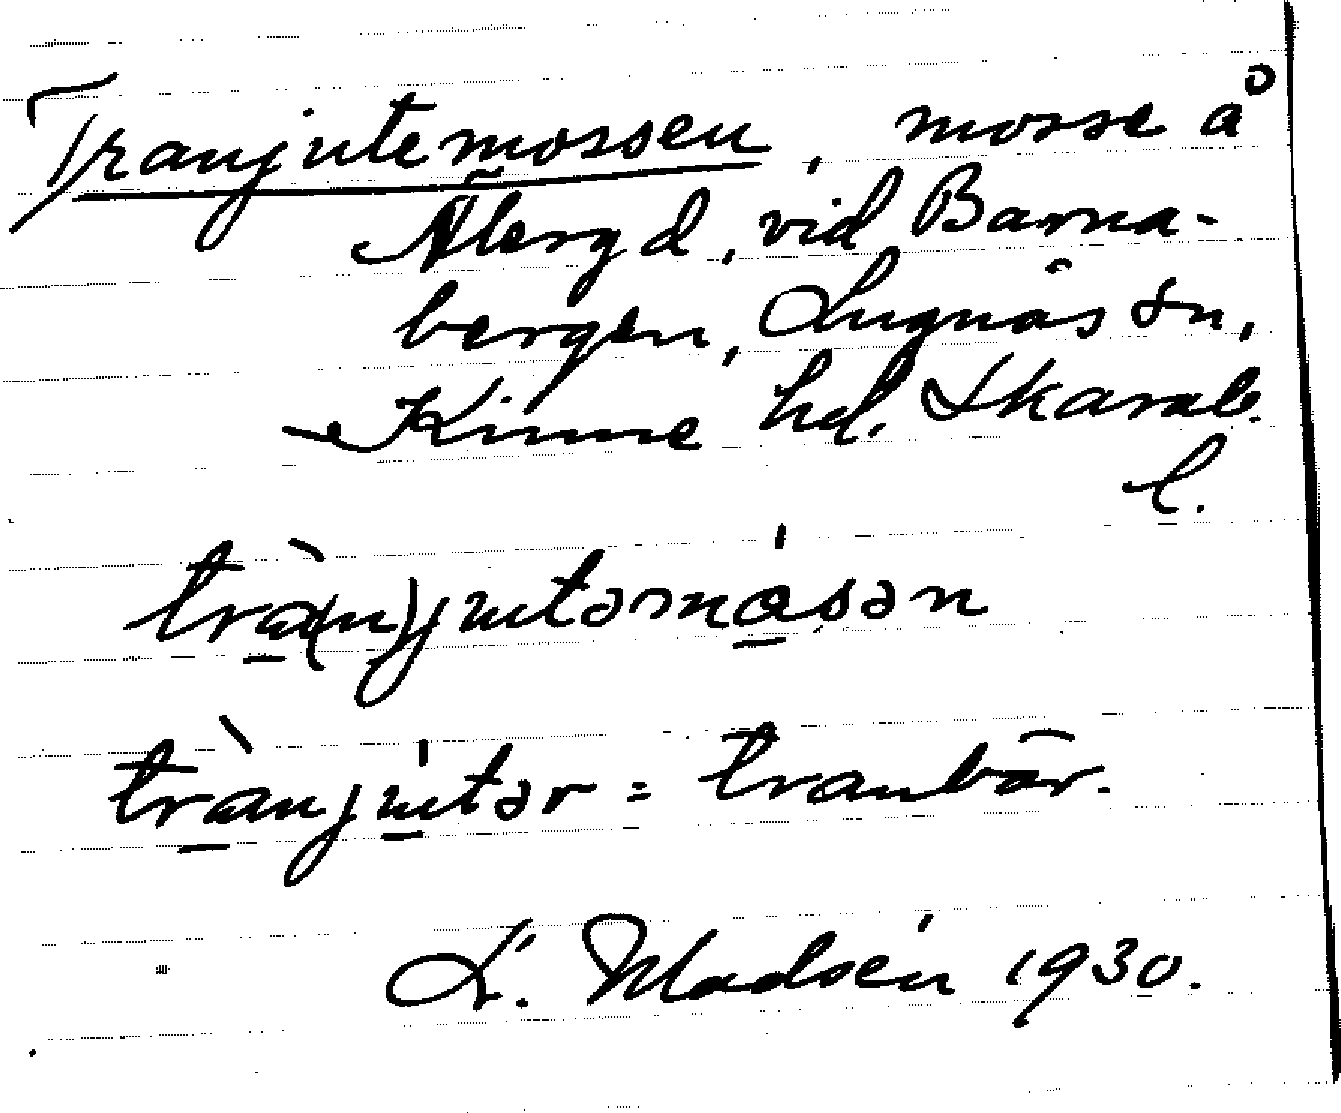 Tranjutemossen, mosse å
Ñbergd, vid Barna-
bergen, Lugnås sn,
Kinne hd. Skarab.
l.
trà(n)jutəmåsən
trànjutər = tranbär.
K. Madsén 1930.